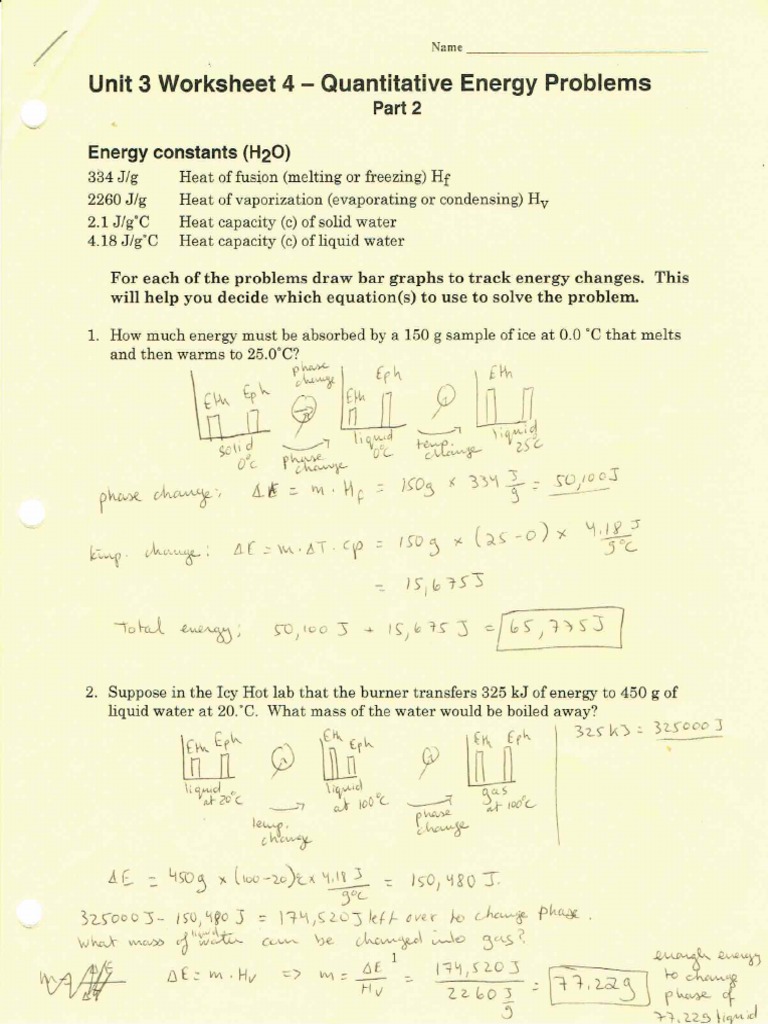 Name
Unit 3 Worksheet 4 – Quantitative Energy Problems
Part 2
Energy constants (H2O)
334 J/g Heat of fusion (melting or freezing) Hf
2260 J/g Heat of vaporization (evaporating or condensing) Hv
2.1 J/g˚C Heat capacity (c) of solid water
4.18 J/g˚C Heat capacity (c) of liquid water
For each of the problems draw bar graphs to track energy changes. This
will help you decide which equation(s) to use to solve the problem.
1. How much energy must be absorbed by a 150 g sample of ice at 0.0 ˚C that melts
and then warms to 25.0˚C?
Eth Eph
solid
0°C
phase
change
phase
change
Eth Eph
liquid
0°C
temp.
change
Eth
liquid
25°C
phase change: ΔE = m · Hf = 150g × 334 J/g = 50,100J
temp. change: ΔE = m·ΔT·cp = 150g × (25-0) × 4.18 J/g°C
= 15,675J
Total energy: 50,100 J + 15,675 J = 65,775J
2. Suppose in the Icy Hot lab that the burner transfers 325 kJ of energy to 450 g of
liquid water at 20.˚C. What mass of the water would be boiled away?
325kJ = 325000J
Eth Eph
liquid
at 20°C
temp.
change
Eth Eph
liquid
at 100°C
phase
change
Eth Eph
gas
at 100°C
ΔE = 450g × (100-20)°C × 4.18 J/g°C = 150,480 J.
325000J - 150,480 J = 174,520J left over to change phase.
What mass of liquid water can be changed into gas?
ΔE = m · Hv => m = ΔE/Hv = 174,520J / 2260 J/g = 77.22g
1
enough energy
to change
phase of
77.22g liquid